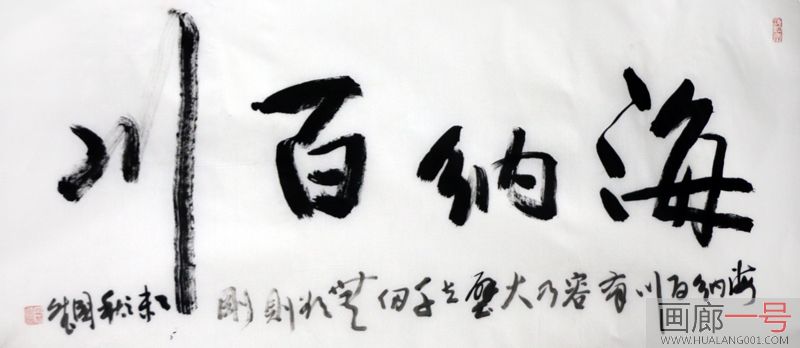 海纳百川
海纳百川有容乃大壁立千仞無欲則剛
乙未之秋國
画廊一号
WWW.HUALANG001.COM